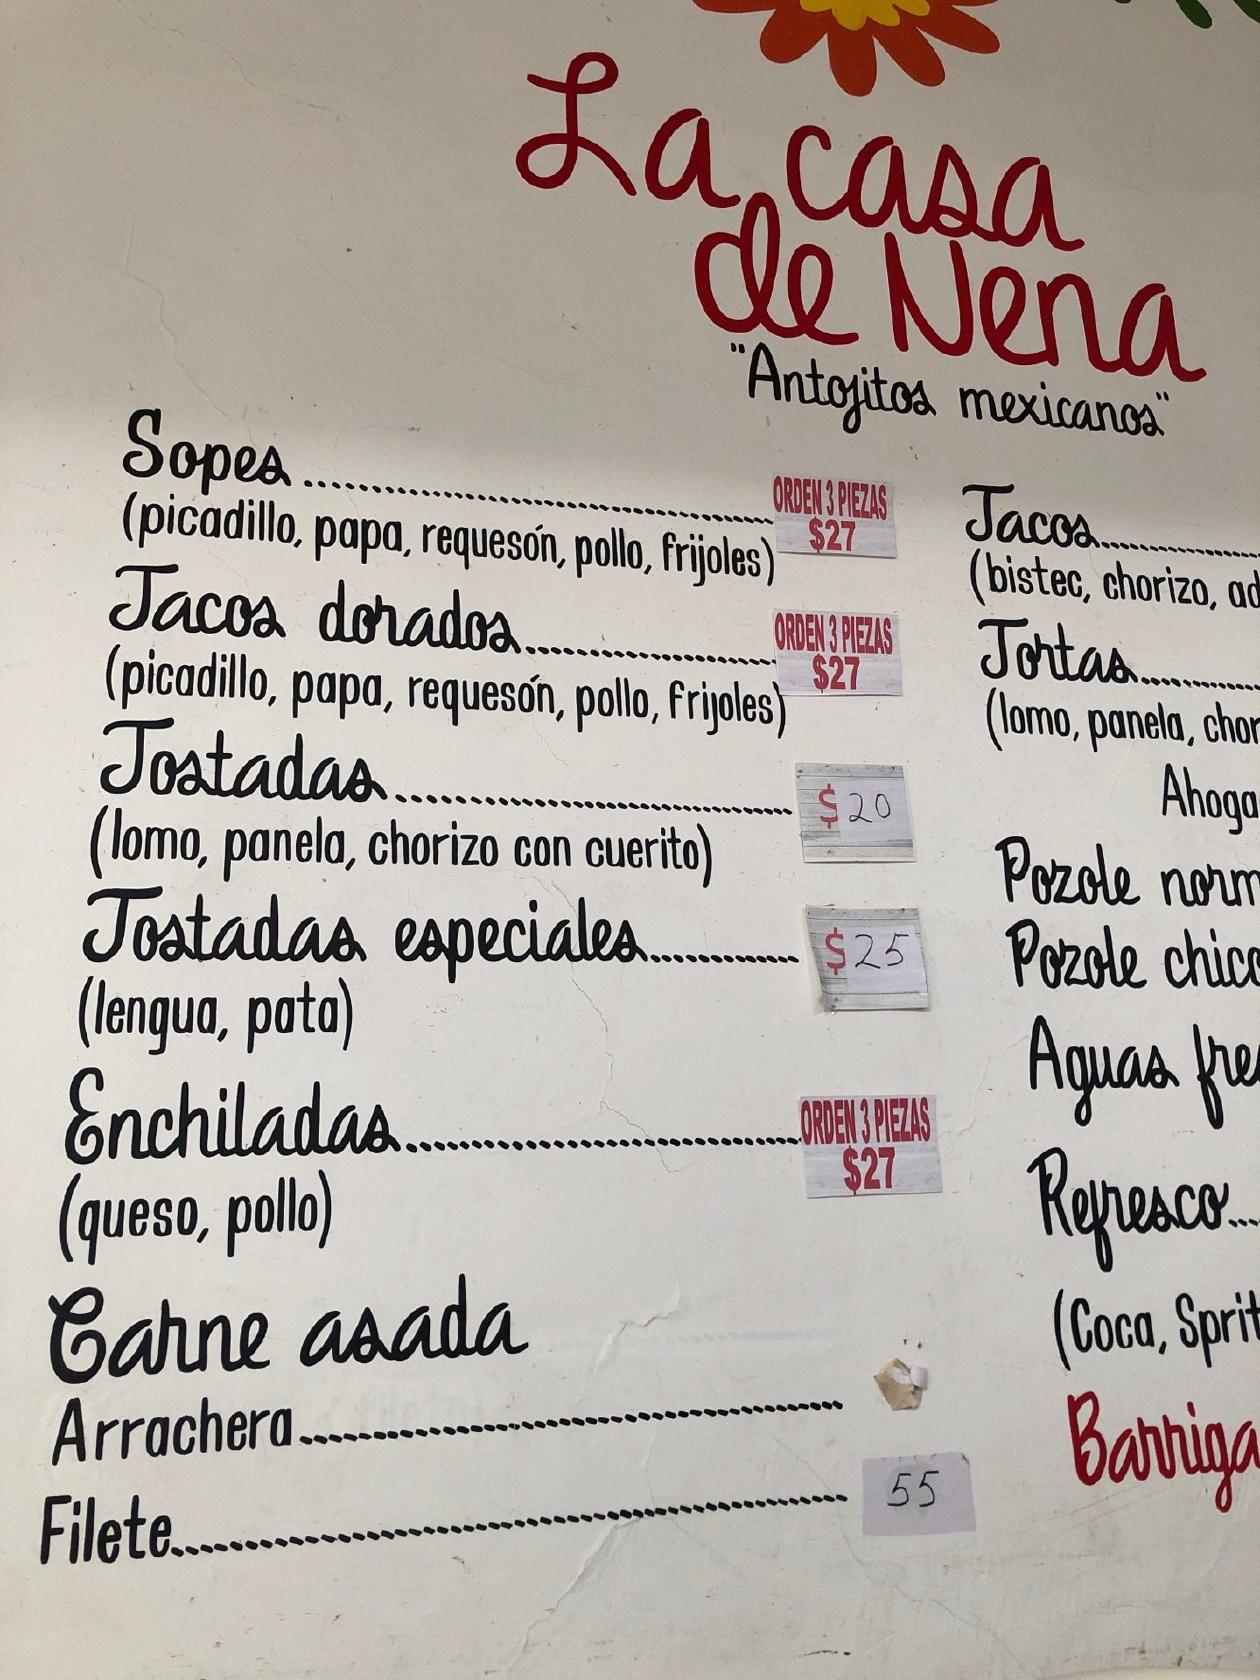 La casa
de Nena
"Antojitos mexicanos"
Sopes........................ORDEN 3 PIEZAS
$27
(picadillo, papa, requesón, pollo, frijoles)
Tacos dorados........................ORDEN 3 PIEZAS
$27
(picadillo, papa, requesón, pollo, frijoles)
Tostadas........................$20
(lomo, panela, chorizo con cuerito)
Tostadas especiales........................$25
(lengua, pata)
Enchiladas........................ORDEN 3 PIEZAS
$27
(queso, pollo)
Carne asada
Arrachera........................
Filete........................55
Tacos........
(bistec, chorizo, ad
Tortas........
(lomo, panela, chor
Ahoga
Pozole norm
Pozole chico
Aguas fre
Refresco...
(Coca, Sprit
Barriga